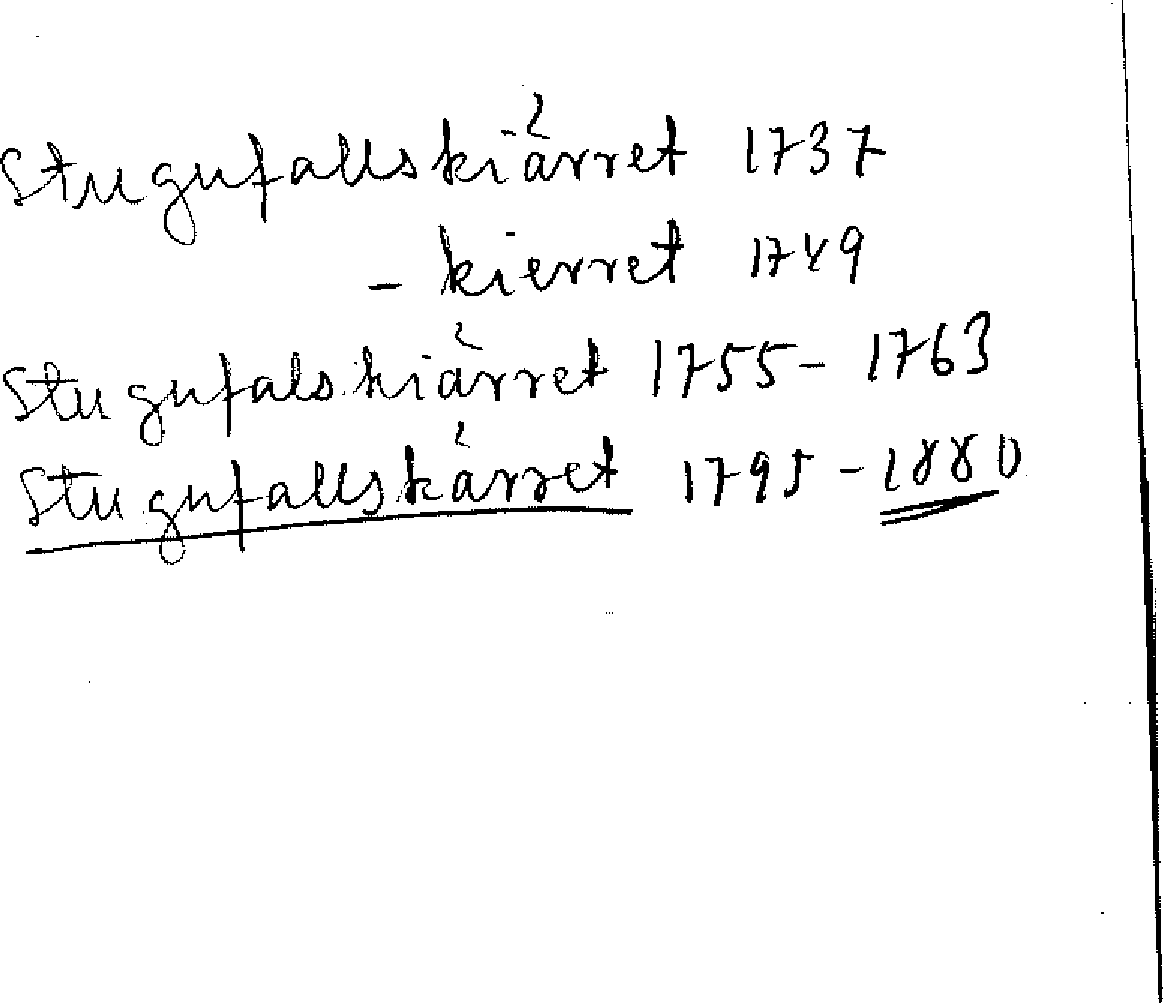 Stugufallskiärret 1737
- kierret 1749
Stugufalskiärret 1755-1763
Stugufallskärret 1795-1880